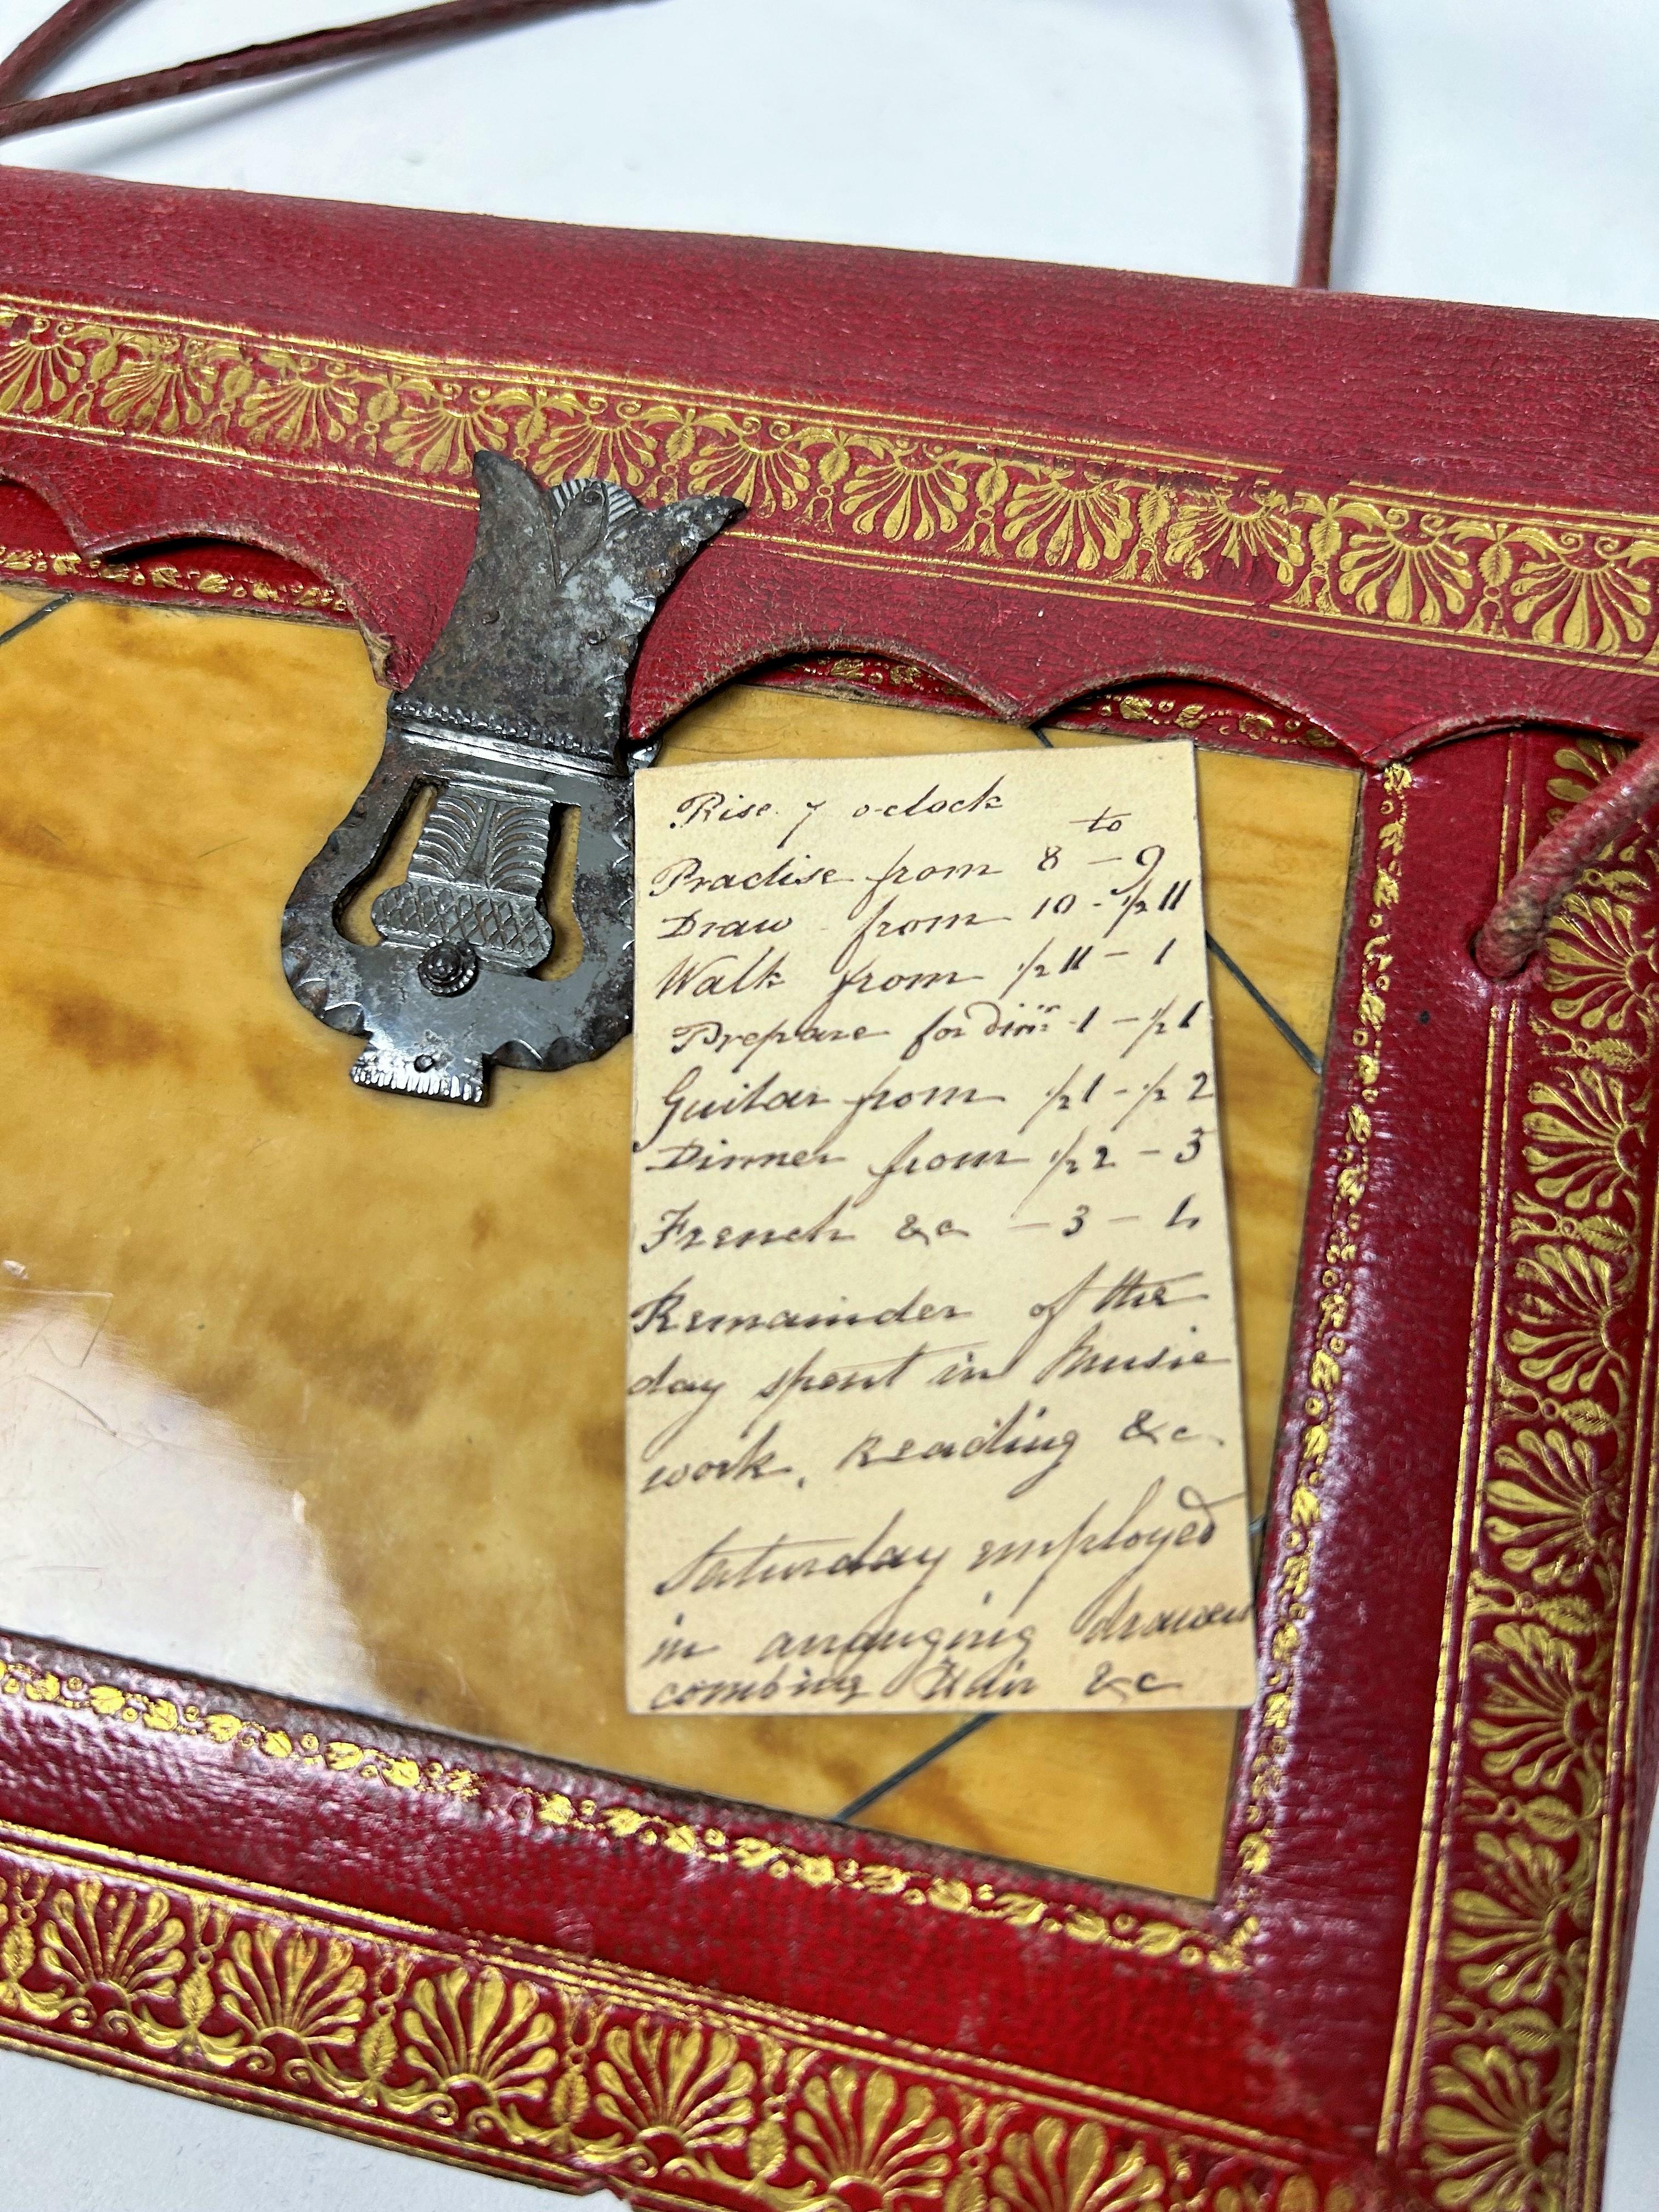 Rise 7 o-clock
to
Practise from 8 – 9
Draw from 10 - 1/2 11
Walk from 1/2 11 – 1
Prepare for dinr 1 – 1/2 1
Guitar from 1/2 1 - 1/2 2
Dinner from 1/2 2 – 3
French &c – 3 – 4
Remainder of the
day spent in Music
work, Reading &c
Saturday employed
in arranging drawers
combing Hair &c